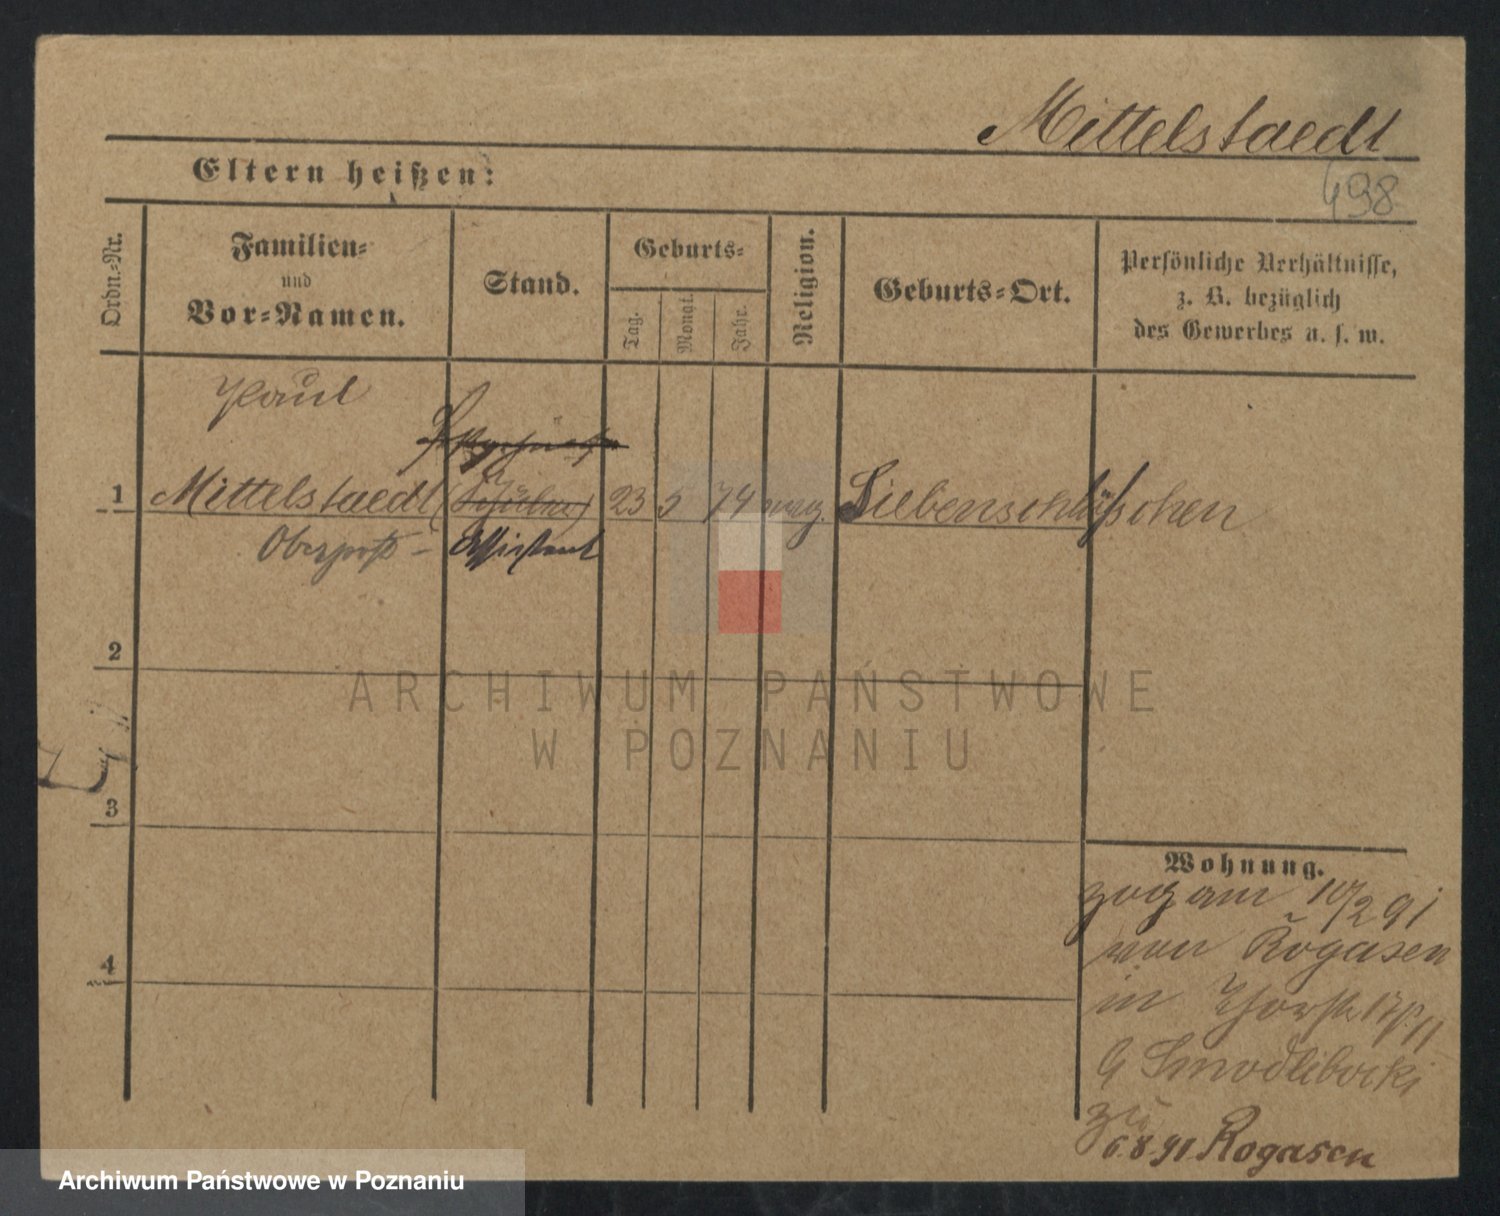 Mittelstaedt
Eltern heißen:
498
Ordn.-Nr.
Familien-
und
Vor-Namen.
Stand.
Geburts-
Tag.
Monat.
Jahr.
Religion.
Geburts-Ort.
Persönliche Verhältnisse,
z. B. bezüglich
des Gewerbes u. s. w.
Paul
1 Mittelstaedt (Schüler) 23 5 74 evag. Siebenschlößchen
Oberpost- Assistent
2
ARCHIWUM PAŃSTWOWE
W POZNANIU
3
Wohnung.
zog am 10/2 91
von Rogasen
in
Smodlibocki
zu
4
6.8.91. Rogasen
Archiwum Państwowe w Poznaniu